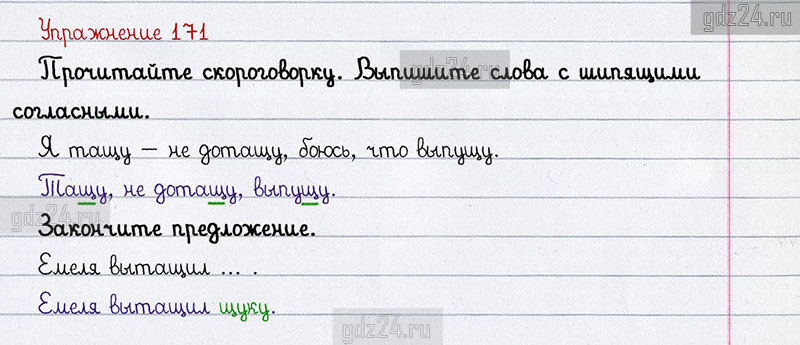 gdz24.ru
Упражнение 171
Прочитайте скороговорку. Выпишите слова с шипящими
gdz24.ru
согласными.
Я тащу – не дотащу, боюсь, что выпущу.
Тащу, не дотащу, выпущу.
gdz24.ru
Закончите предложение.
Емеля вытащил ... .
Емеля вытащил щуку.
gdz24.ru